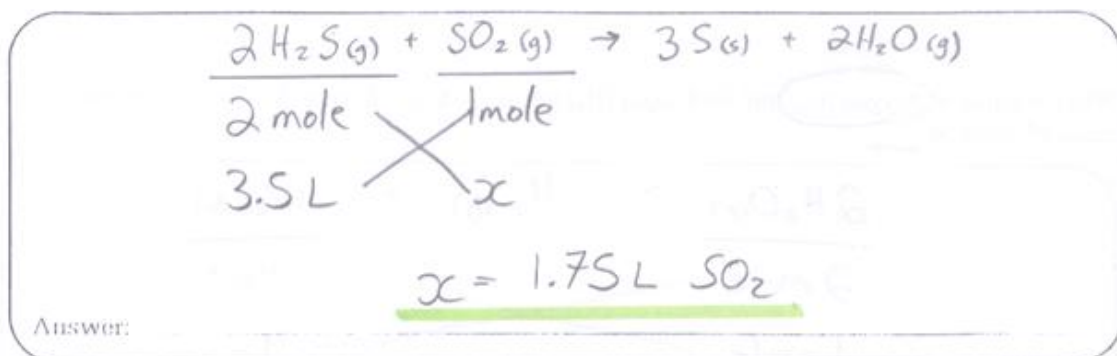 2H₂S(g) + SO₂(g) → 3S(s) + 2H₂O(g)
2 mole 1mole
3.5L x
x = 1.75L SO₂
Answer: